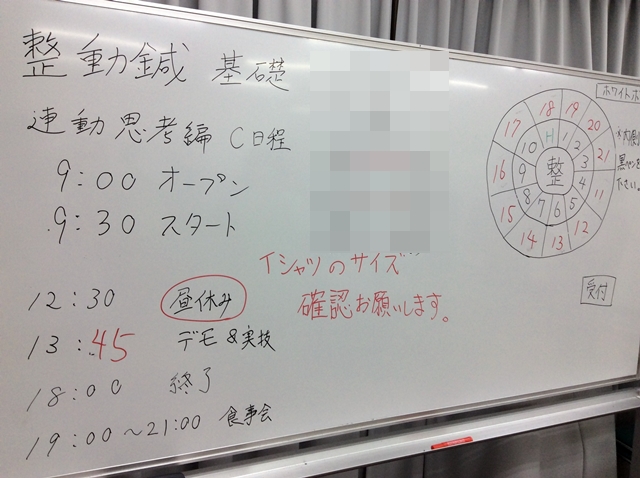 整動鍼 基礎
連動思考編 C日程
9:00 オープン
9:30 スタート
Tシャツのサイズ
確認お願いします。
12:30 昼休み
13:45 デモ&実技
18:00 終了
19:00~21:00 食事会
ホワイトボ
黒ペンを
下さい。
17 18 19 20 21 11 12 13 14 15 16
H 1 2 3 4 5 6 7 8 9 10
整
受付